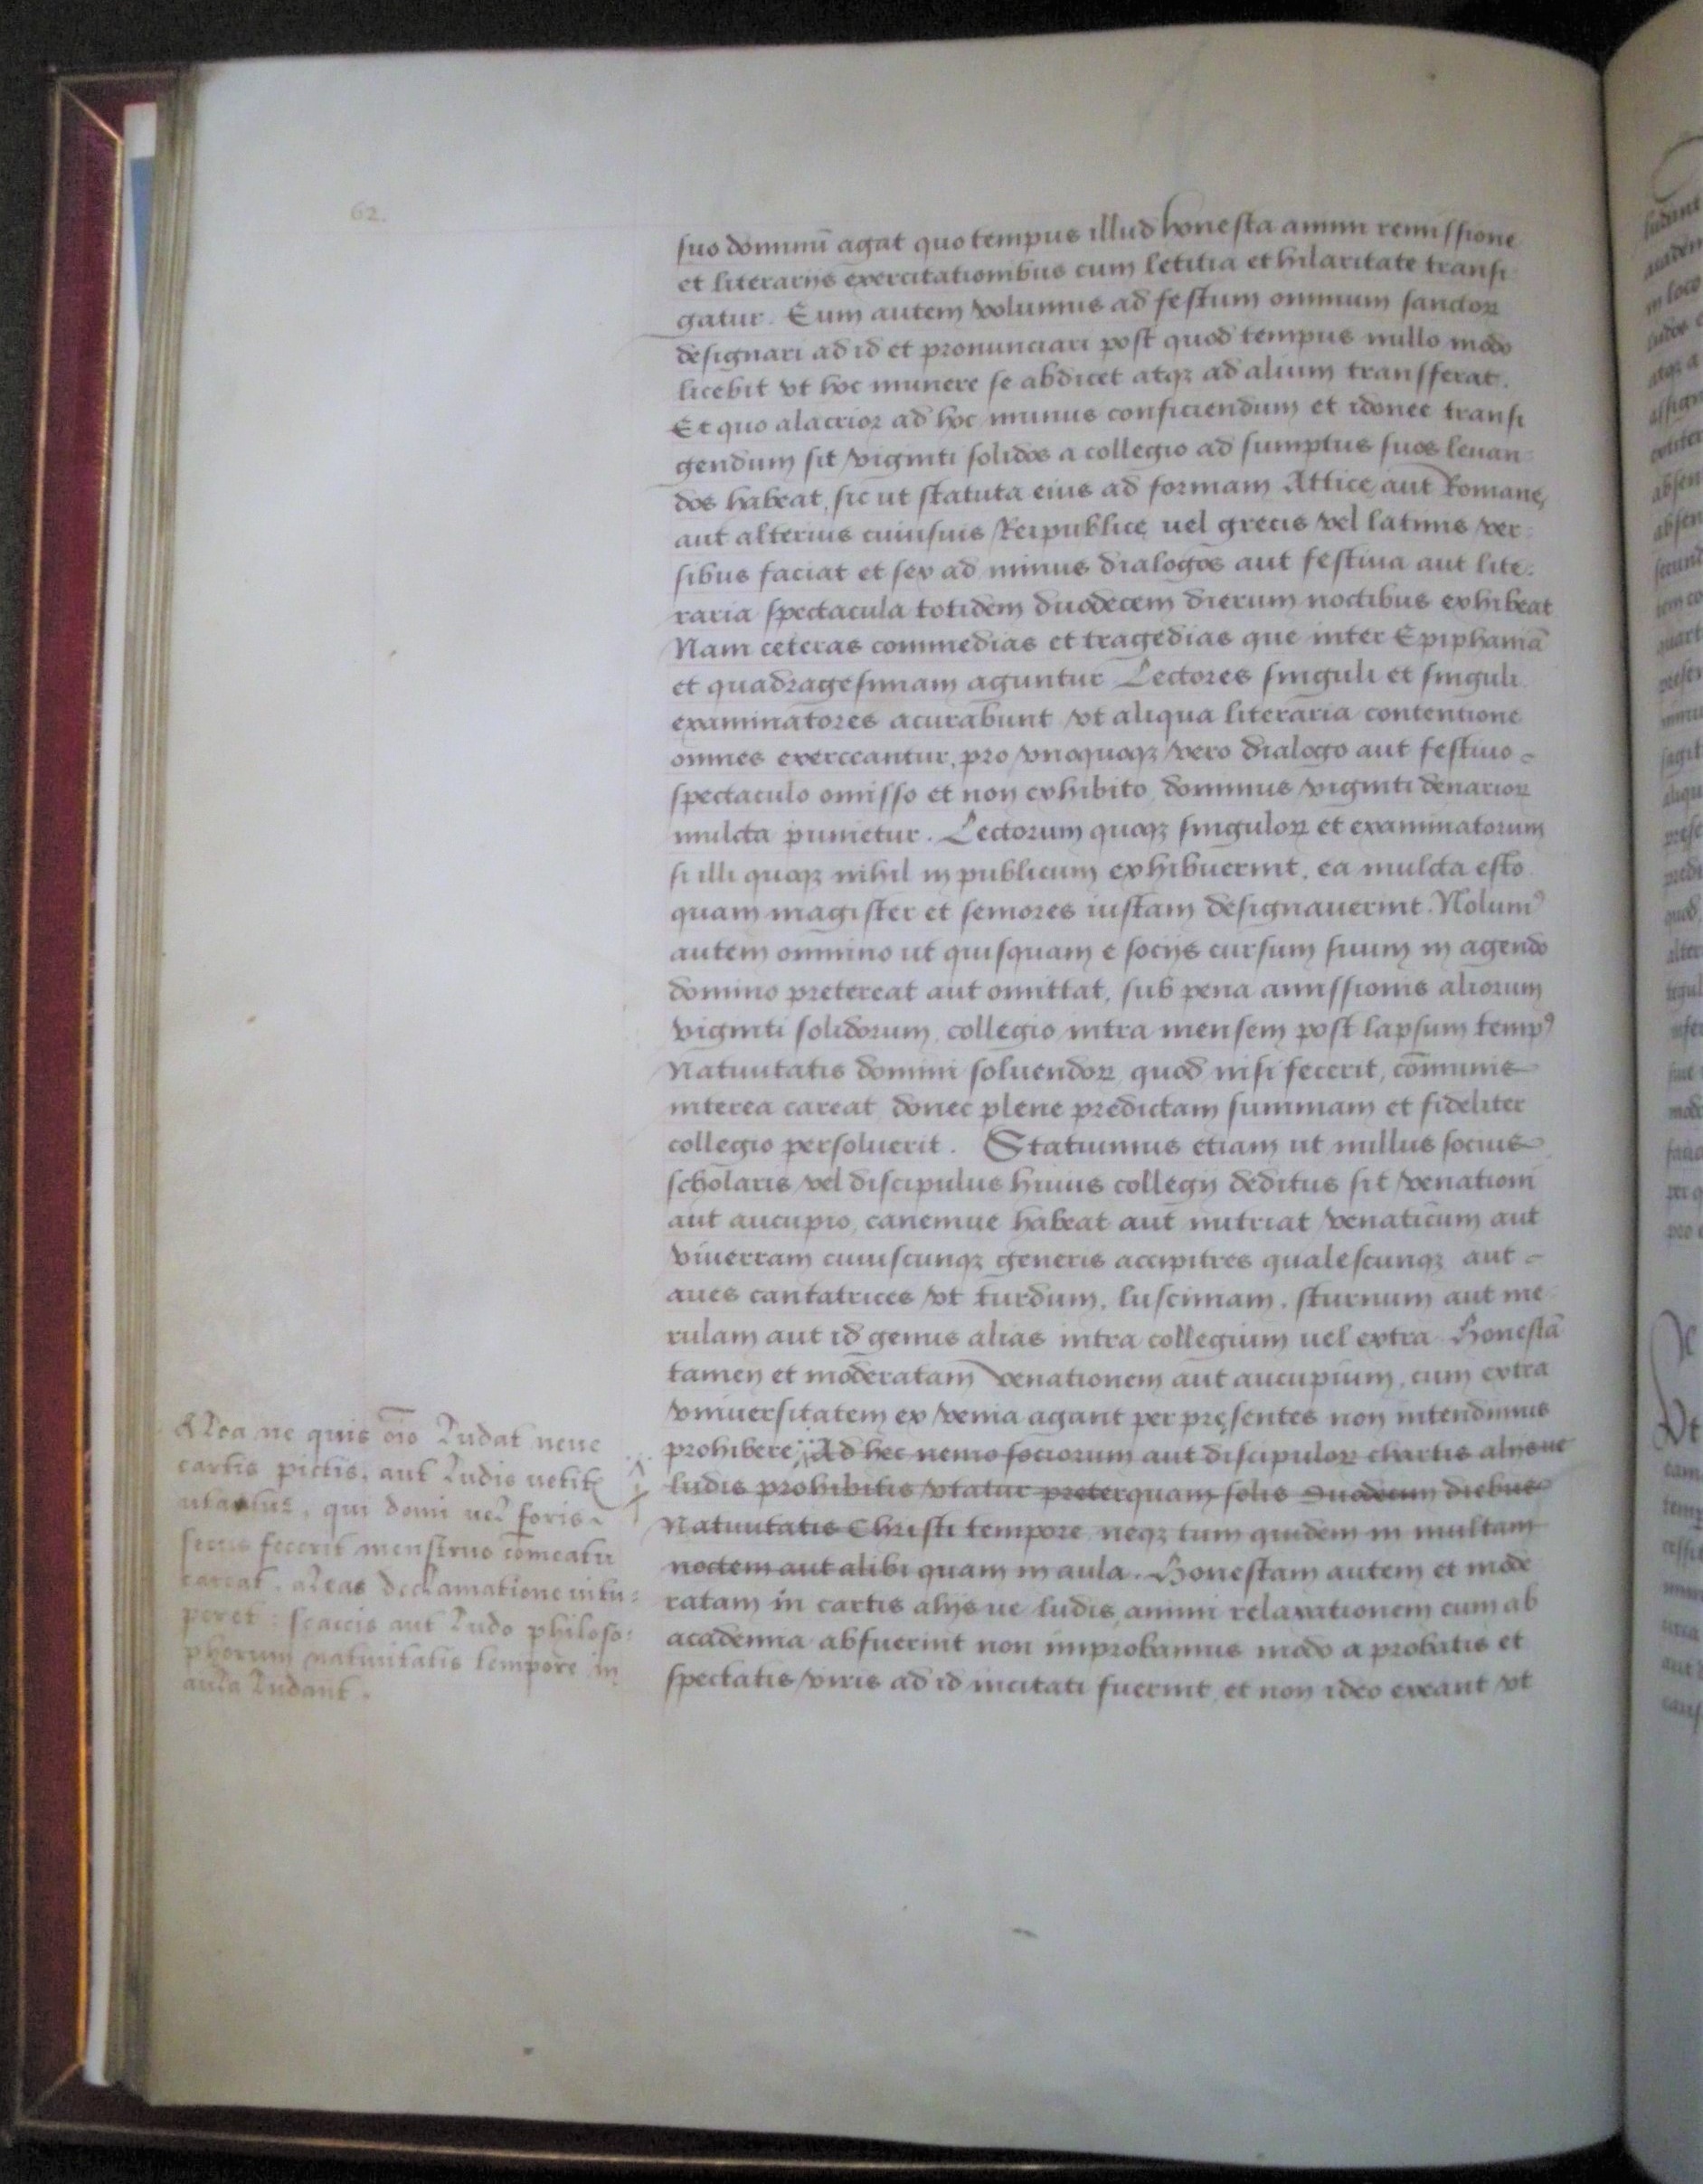 62.
suo dominū agat quo tempus illud honesta animi remissione
et literarijs exercitationibus cum letitia et hilaritate transi-
gatur. Eum autem volumus ad festum omnium sanctoꝝ
designari ad id et pronunciari post quod tempus nullo modo
licebit vt hoc munere se abdicet atqꝫ ad alium transferat.
Et quo alacrior ad hoc munus conficiendum et idonee transi
gendum sit viginti solidos a collegio ad sumptus suos leuan-
dos habeat, sic ut statuta eius ad formam Attice aut Romane,
aut alterius cuiusuis Reipublicę uel grecis vel latinis ver-
sibus faciat et sex ad minus dialogos aut festiua aut lite-
raria spectacula totidem duodecem dierum noctibus exhibeat
Nam ceteras commedias et tragedias que inter Epiphaniā
et quadragesimam aguntur Lectores singuli et singuli
examinatores acurabunt vt aliqua literaria contentione
omnes exerceantur, pro vnoquoqꝫ vero dialogo aut festiuo-
spectaculo omisso et non exhibito dominus viginti denarioꝝ
mulcta punietur. Lectorum quoqꝫ singuloꝝ et examinatorum
si illi quoqꝫ nihil in publicum exhibuerint, ea mulcta esto
quam magister et seniores iustam designauerint. Nolumꝰ
autem omnino ut quisquam e socijs cursum suum in agendo
domino pretereat aut omittat, sub pena amissionis aliorum
viginti solidorum collegio intra mensem post lapsum tempꝰ
Natiuitatis domini soluendoꝝ quod nisi fecerit, cōmunis
interea careat donec plene predictam summam et fideliter
collegio persoluerit. Statuimus etiam ut nullus socius
scholaris vel discipulus huius collegij deditus sit venationi
aut aucupio, canemue habeat aut nutriat venaticum aut
viuerram cuiuscunqꝫ generis accipitres qualescunqꝫ aut-
aues cantatrices vt turdum, lusciniam, sturnum aut me-
rulam aut id genus alias intra collegium uel extra Honestā
tamen et moderatam venationem aut aucupium, cum extra
vniuersitatem ex venia agant per pręsentes non intendimus
prohibere. Ad hec nemo sociorum aut discipuloꝝ chartis alijsue
ludis prohibitis vtatur preterquam solis duodecim diebus
Natiuitatis Christi tempore neqꝫ tum quidem in multam
noctem aut alibi quam in aula. Honestam autem et mode
ratam in cartis alijs ue ludis animi relaxationem cum ab
academia abfuerint non improbamus modo a probatis et
spectatis viris ad id incitati fuerint et non ideo exeant vt
Alea ne quis oīo Ludat neue
cartis pictis, aut Ludis uetitę
qui domi uel foris
secus fecerit menstruo cōmeatu
careat. aleas declamatione uitu-
peret: scaccis aut Ludo philoso-
phorum natiuitatis tempore in
aula Ludant.